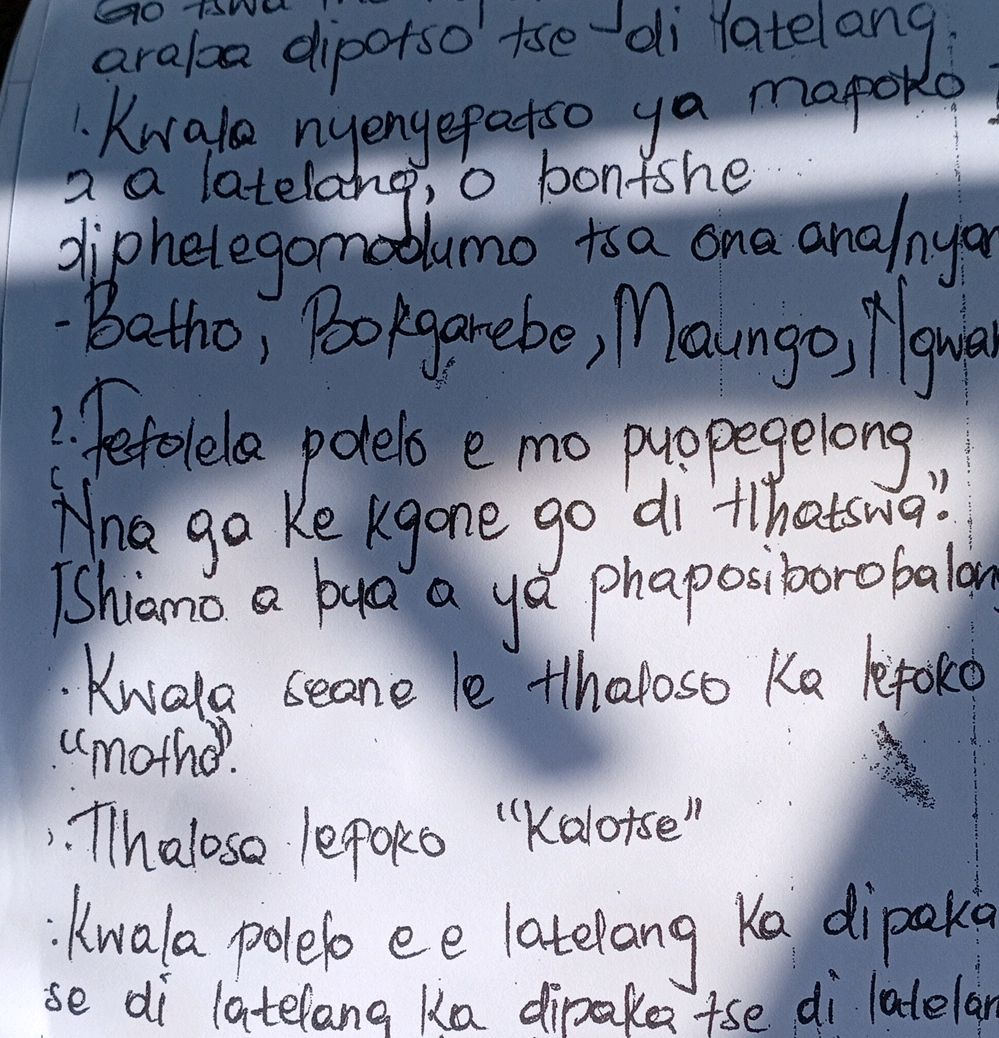 Go tswa
araba dipotso tse di latelang.
1. Kwala nyenyefatso ya mafoko
a a latelang, o bontshe
diphelegomodumo tsa ona ana/nyan
- Batho, Bokgarebe, Maungo, Ngwa
2. Fetolela polelo e mo puopegelong
"Nna ga ke kgone go di tlhatswa".
Tshiamo a bua a ya phaposiborobalon
. Kwala seane le tlhaloso ka lefoko
"motho".
. Tlhalosa lefoko "Kalotse"
. Kwala polelo e e latelang ka dipaka
se di latelang ka dipaka tse di latelan